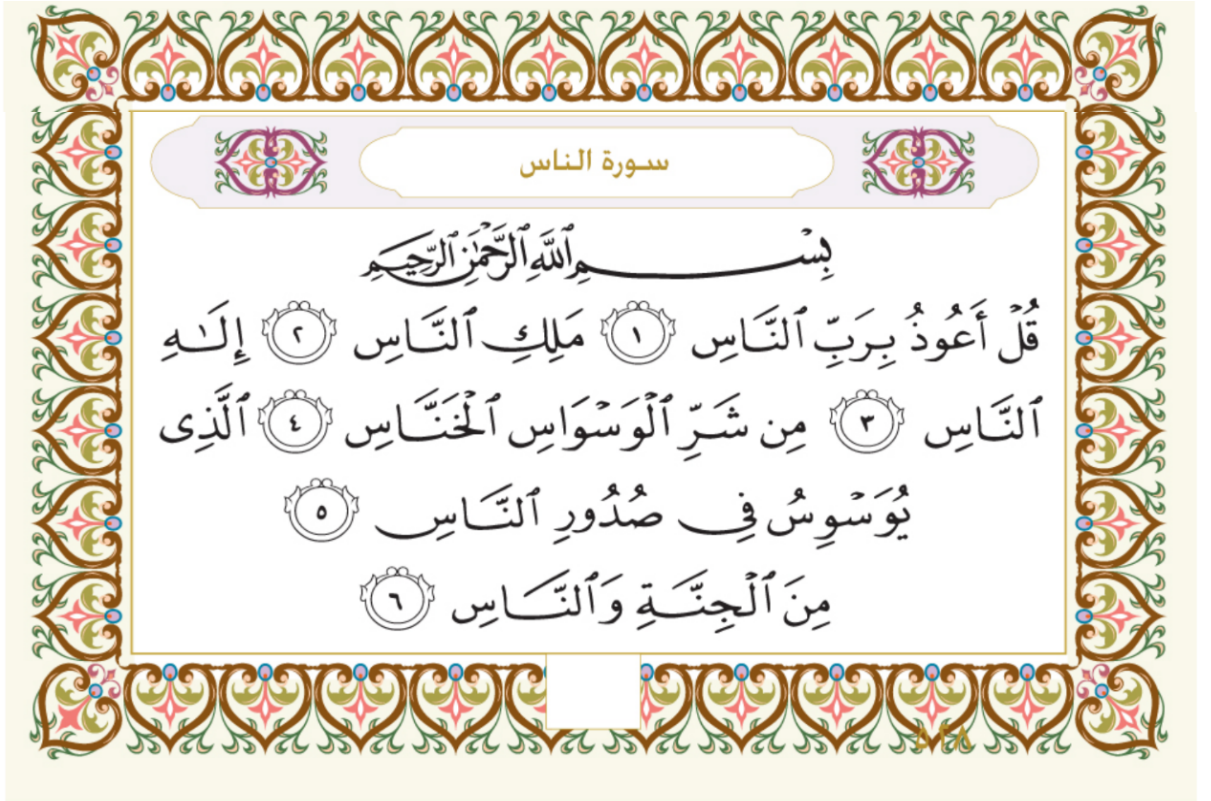 سورة الناس
بِسْمِ ٱللَّهِ ٱلرَّحْمَٰنِ ٱلرَّحِيمِ
قُلْ أَعُوذُ بِرَبِّ ٱلنَّاسِ ١ مَلِكِ ٱلنَّاسِ ٢ إِلَٰهِ
ٱلنَّاسِ ٣ مِن شَرِّ ٱلْوَسْوَاسِ ٱلْخَنَّاسِ ٤ ٱلَّذِى
يُوَسْوِسُ فِى صُدُورِ ٱلنَّاسِ ٥
مِنَ ٱلْجِنَّةِ وَٱلنَّاسِ ٦
٥٢٨